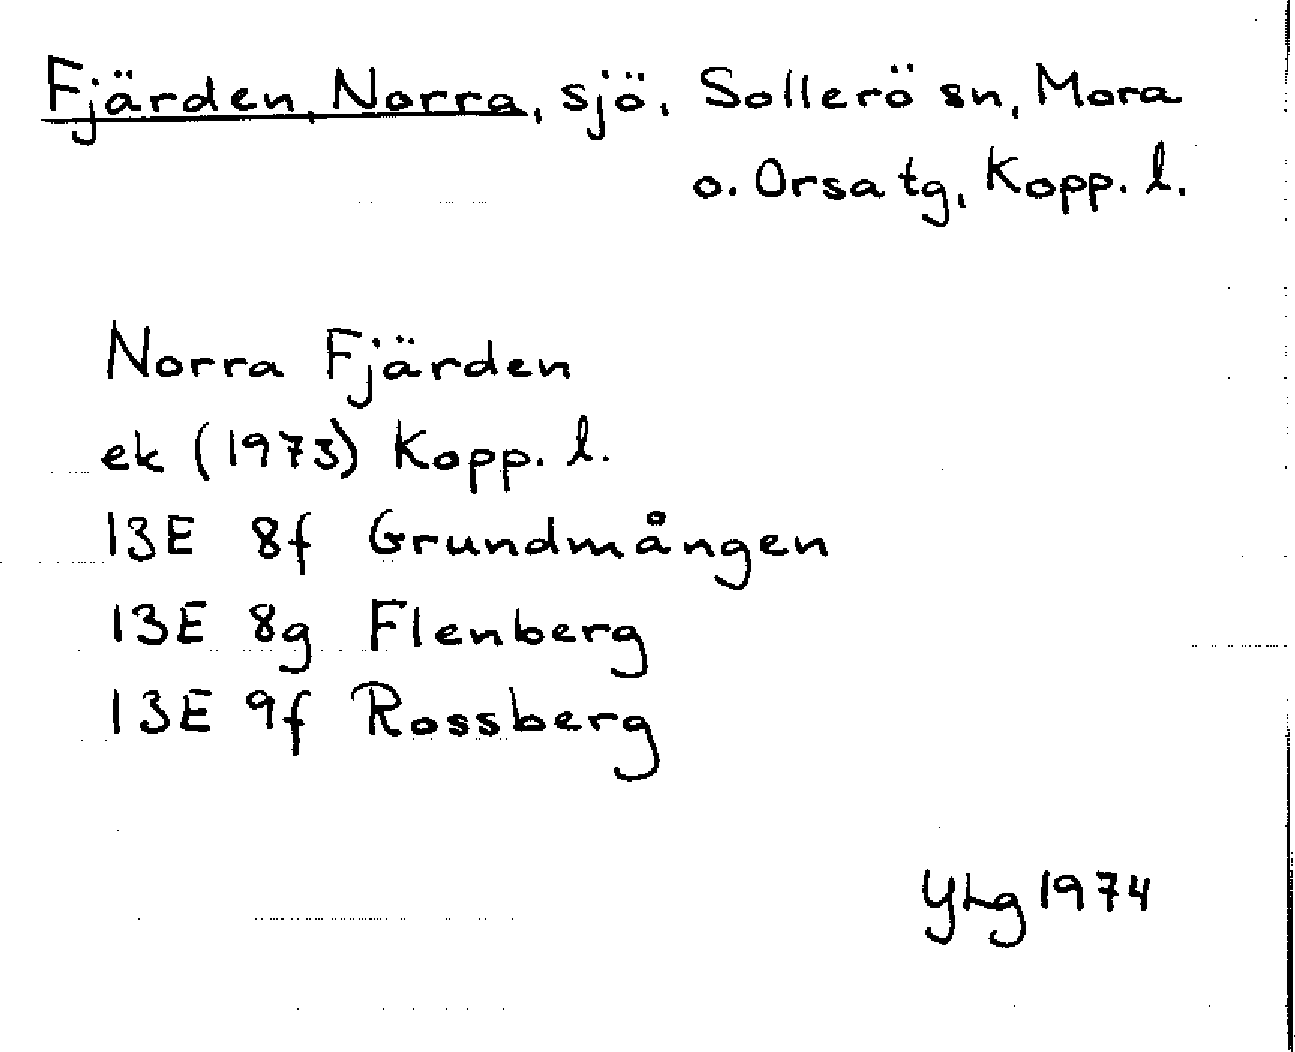 Fjärden, Norra, sjö, Sollerö sn, Mora
o. Orsa tg, Kopp. l.
Norra Fjärden
ek (1973) Kopp. l.
13E 8f Grundmången
13E 8g Flenberg
13E 9f Rossberg
YLg 1974